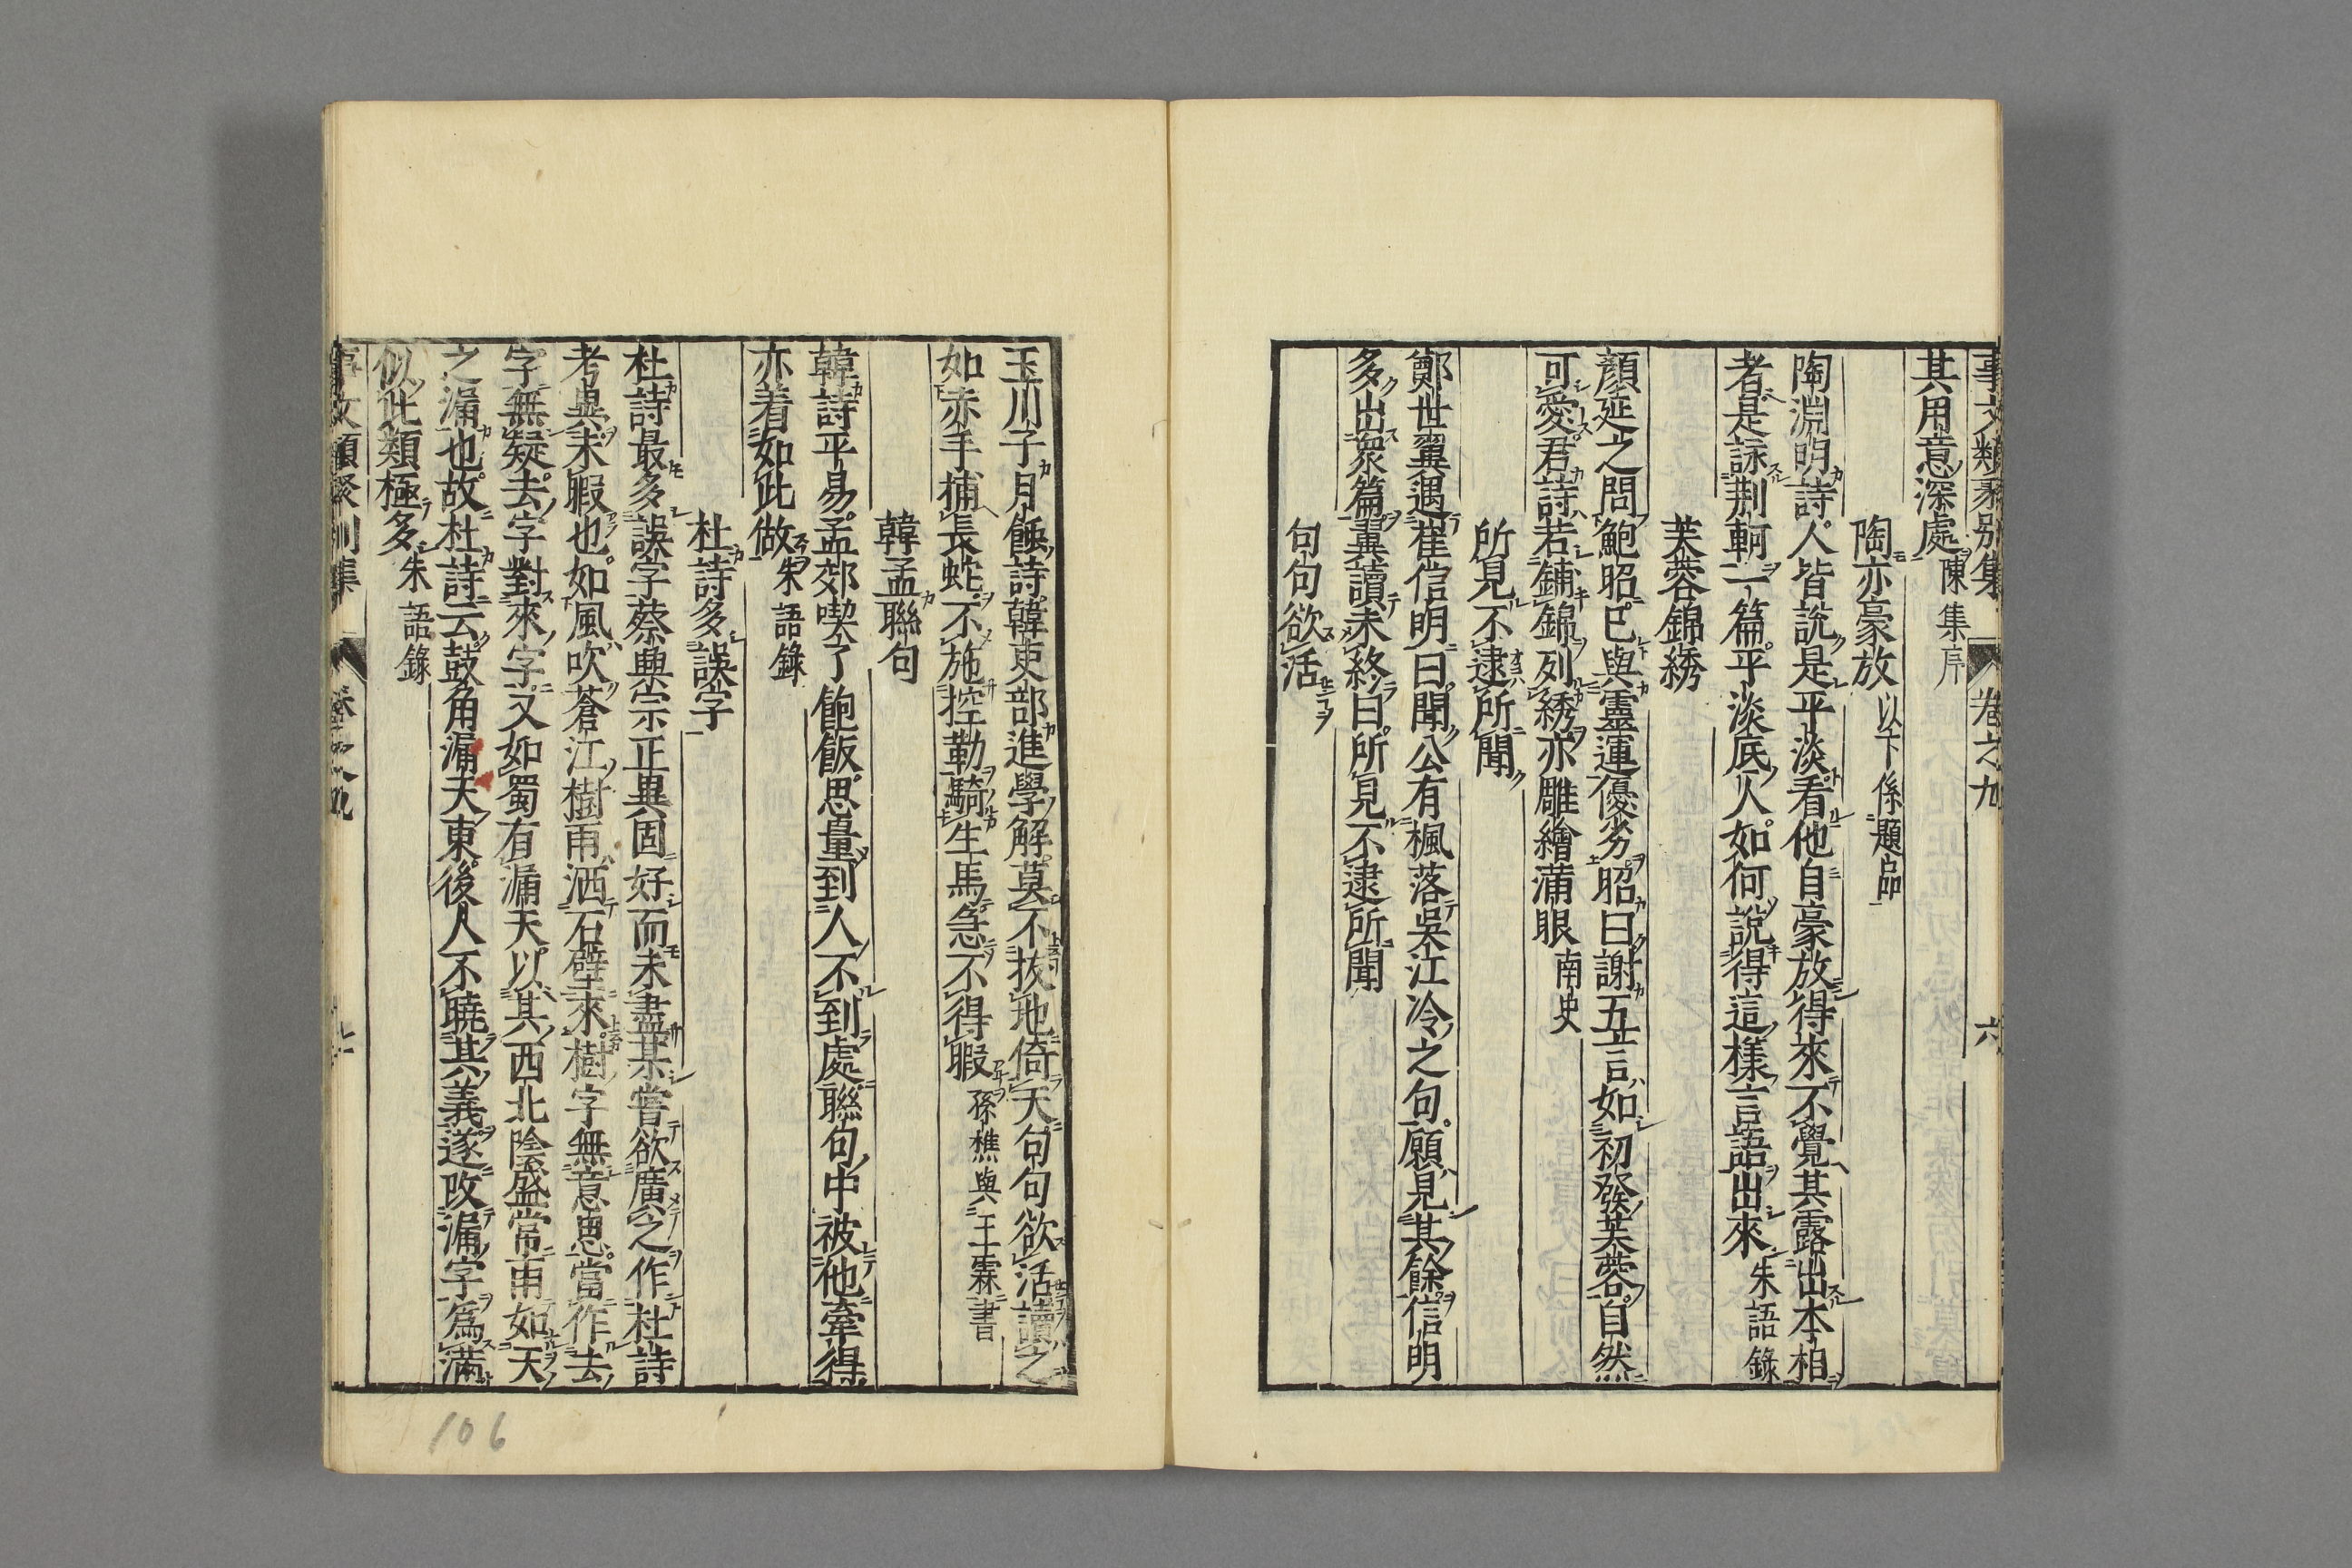 事文類聚別集 卷之九 六
其用意深處陳集序
陶亦豪放以下係題品
陶淵明詩人皆說是平淡看他自豪放得來不覺其露出本相
者是詠荆軻一篇平淡底人如何說得這樣言語出來朱語錄
芙蓉錦綉
顏延之問鮑昭已與靈運優劣昭曰謝五言如初發芙蓉自然
可愛君詩若鋪錦列綉亦雕繪滿眼南史
所見不逮所聞
鄭世翼遇崔信明曰聞公有楓落吳江冷之句願見其餘信明
多出衆篇翼讀未終曰所見不逮所聞
句句欲活
玉川子月蝕詩韓吏部進學解莫不拔地倚天句句欲活讀之
如赤手捕長蛇不施控勒騎生馬急不得暇孫樵與王霖書
韓孟聯句
韓詩平易孟郊喫了飽飯思量到人不到處聯句中被他牽得
亦着如此做朱語錄
杜詩多誤字
杜詩最多誤字蔡興宗正異固好而未盡某嘗欲廣之作杜詩
考異未暇也如風吹蒼江樹雨洒石壁來樹字無意思當作去
字無疑去字對來字又如蜀有漏天以其西北陰盛常雨如天
之漏也故杜詩云鼓角漏天東後人不曉其義遂改漏字爲滿
似此類極多朱語錄